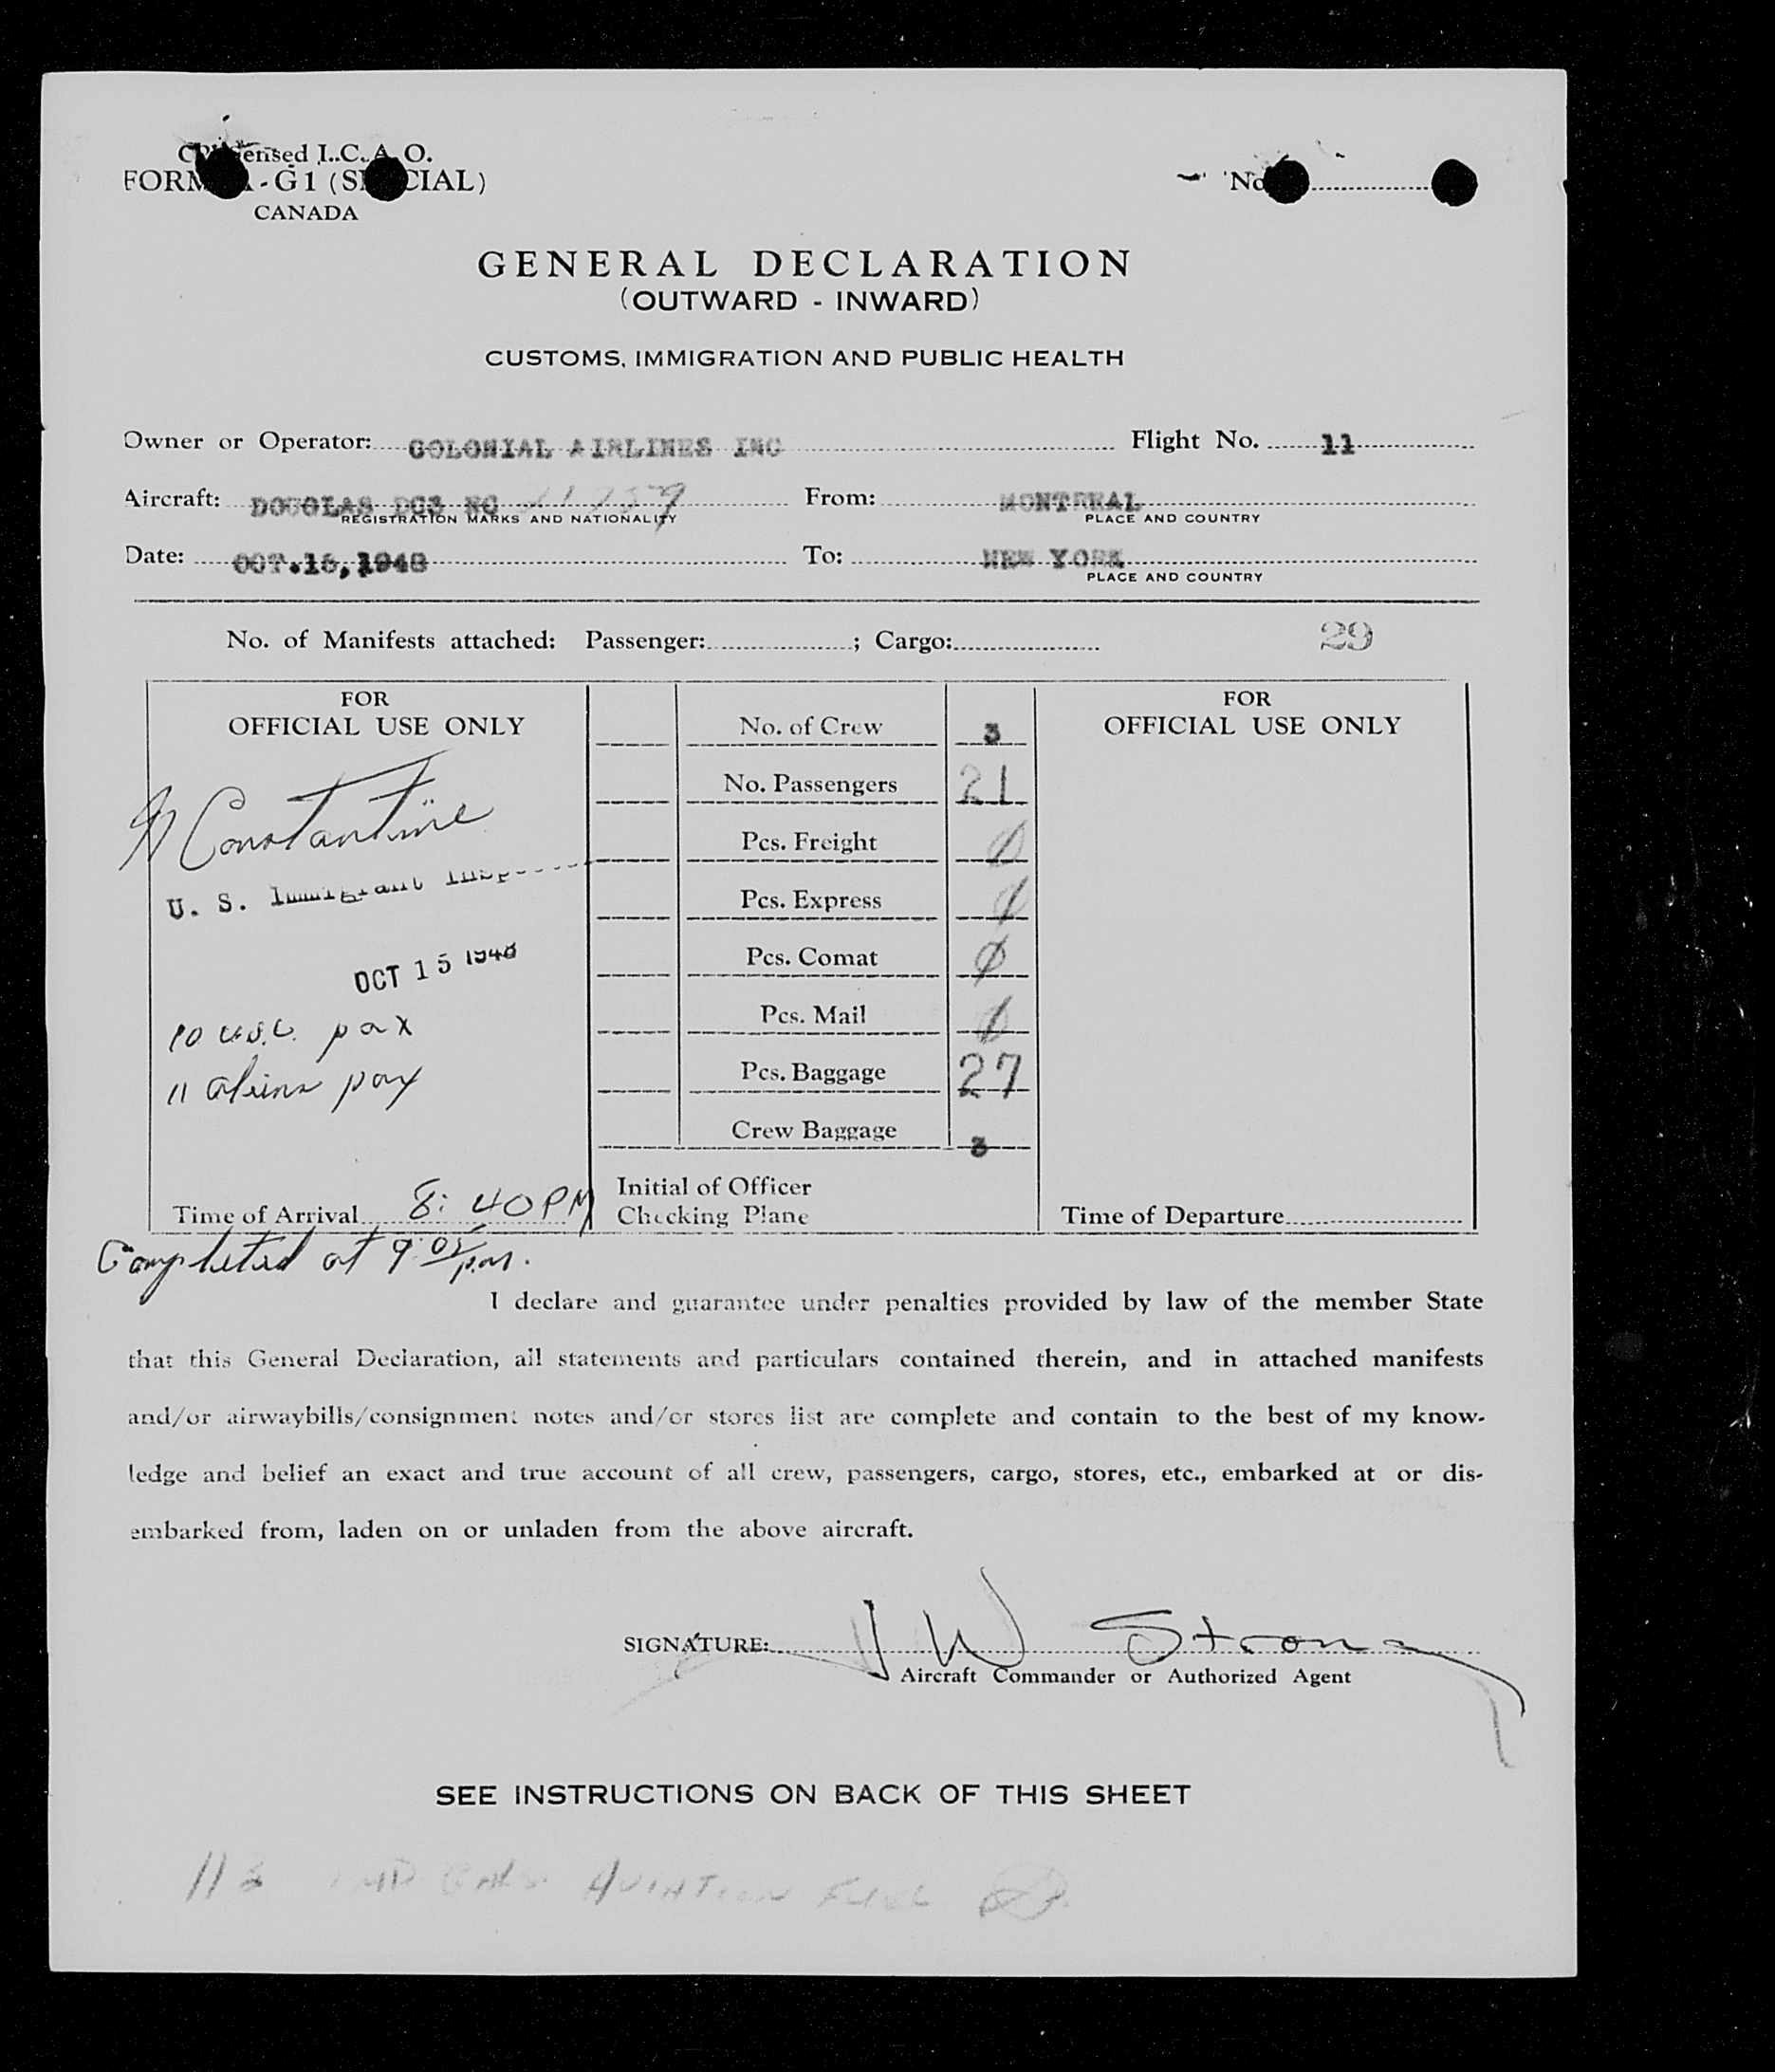 ensed I.C.A.O.
FORM -G1 (SPECIAL)
CANADA
No
GENERAL DECLARATION
(OUTWARD - INWARD)
CUSTOMS, IMMIGRATION AND PUBLIC HEALTH
Owner or Operator: COLONIAL AIRLINES INC Flight No. 11
Aircraft: DOUGLAS DC3 NC From: MONTREAL
REGISTRATION MARKS AND NATIONALITY PLACE AND COUNTRY
Date: OCT.15,1948 To: NEW YORK
PLACE AND COUNTRY
No. of Manifests attached: Passenger: ; Cargo: 29
FOR
OFFICIAL USE ONLY
Constantine
U. S. Immigrant
OCT 15 1948
10 U.S.C. pax
11 aliens pax
Time of Arrival 8:40 PM
No. of Crew 3
No. Passengers 21
Pcs. Freight 0
Pcs. Express 0
Pcs. Comat 0
Pcs. Mail 0
Pcs. Baggage 27
Crew Baggage 3
Initial of Officer
Checking Plane
FOR
OFFICIAL USE ONLY
Time of Departure
Completed at 9:05 p.m.
I declare and guarantee under penalties provided by law of the member State
that this General Declaration, all statements and particulars contained therein, and in attached manifests
and/or airwaybills/consignment notes and/or stores list are complete and contain to the best of my know-
ledge and belief an exact and true account of all crew, passengers, cargo, stores, etc., embarked at or dis-
embarked from, laden on or unladen from the above aircraft.
SIGNATURE: J W Strong
Aircraft Commander or Authorized Agent
SEE INSTRUCTIONS ON BACK OF THIS SHEET
AVIATION FUEL